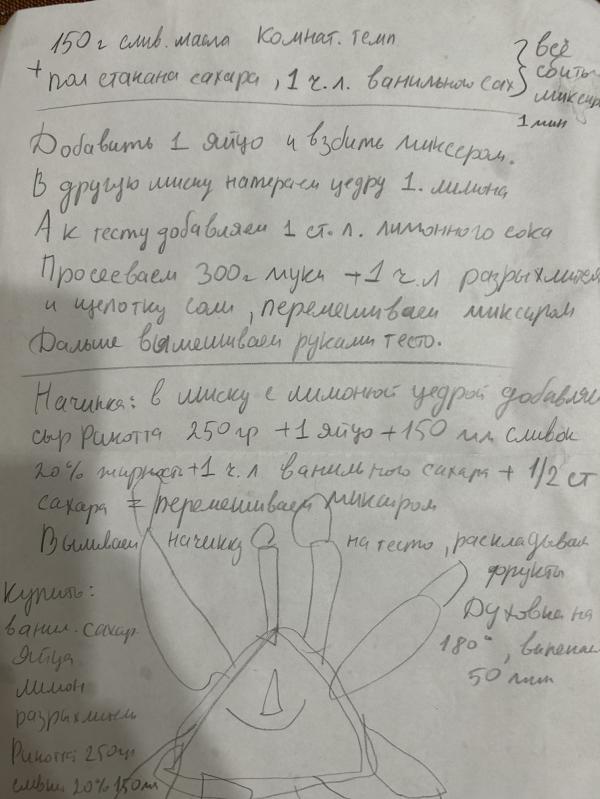 150 г слив. масла Комнат. темп
+ пол стакана сахара, 1 ч.л. ванильного сах
всё
сбить
миксир
1 мин
Добавить 1 яйцо и взбить миксером.
В другую миску натераем цедру 1. лимона
А к тесту добавляем 1 ст. л. лимонного сока
Просееваем 300г муки +1 ч.л разрыхлителя
и щепотку соли, перемешиваем миксиром
Дальше вымешиваем руками тесто.
Начинка: в миску с лимонной цедрой добавляем
сыр Рикотта 250 гр +1 яйцо +150 мл сливок
20% жирность +1 ч.л ванильного сахара + 1/2 ст
сахара = перемешиваем миксиром
Выливаем начинку на тесто, раскладывая
фрукты
Духовка на
180°, выпекаем
50 мин
Купить:
ванил. сахар
Яйца
лимон
разрыхлитель
Рикотта 250гр
сливки 20% 150мл